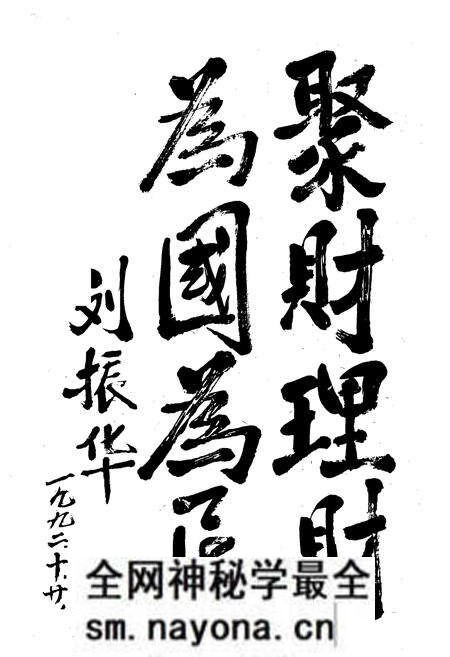 聚財理財
為國為民
刘振华
一九九二.十.廿.
全网神秘学最全
sm.nayona.cn